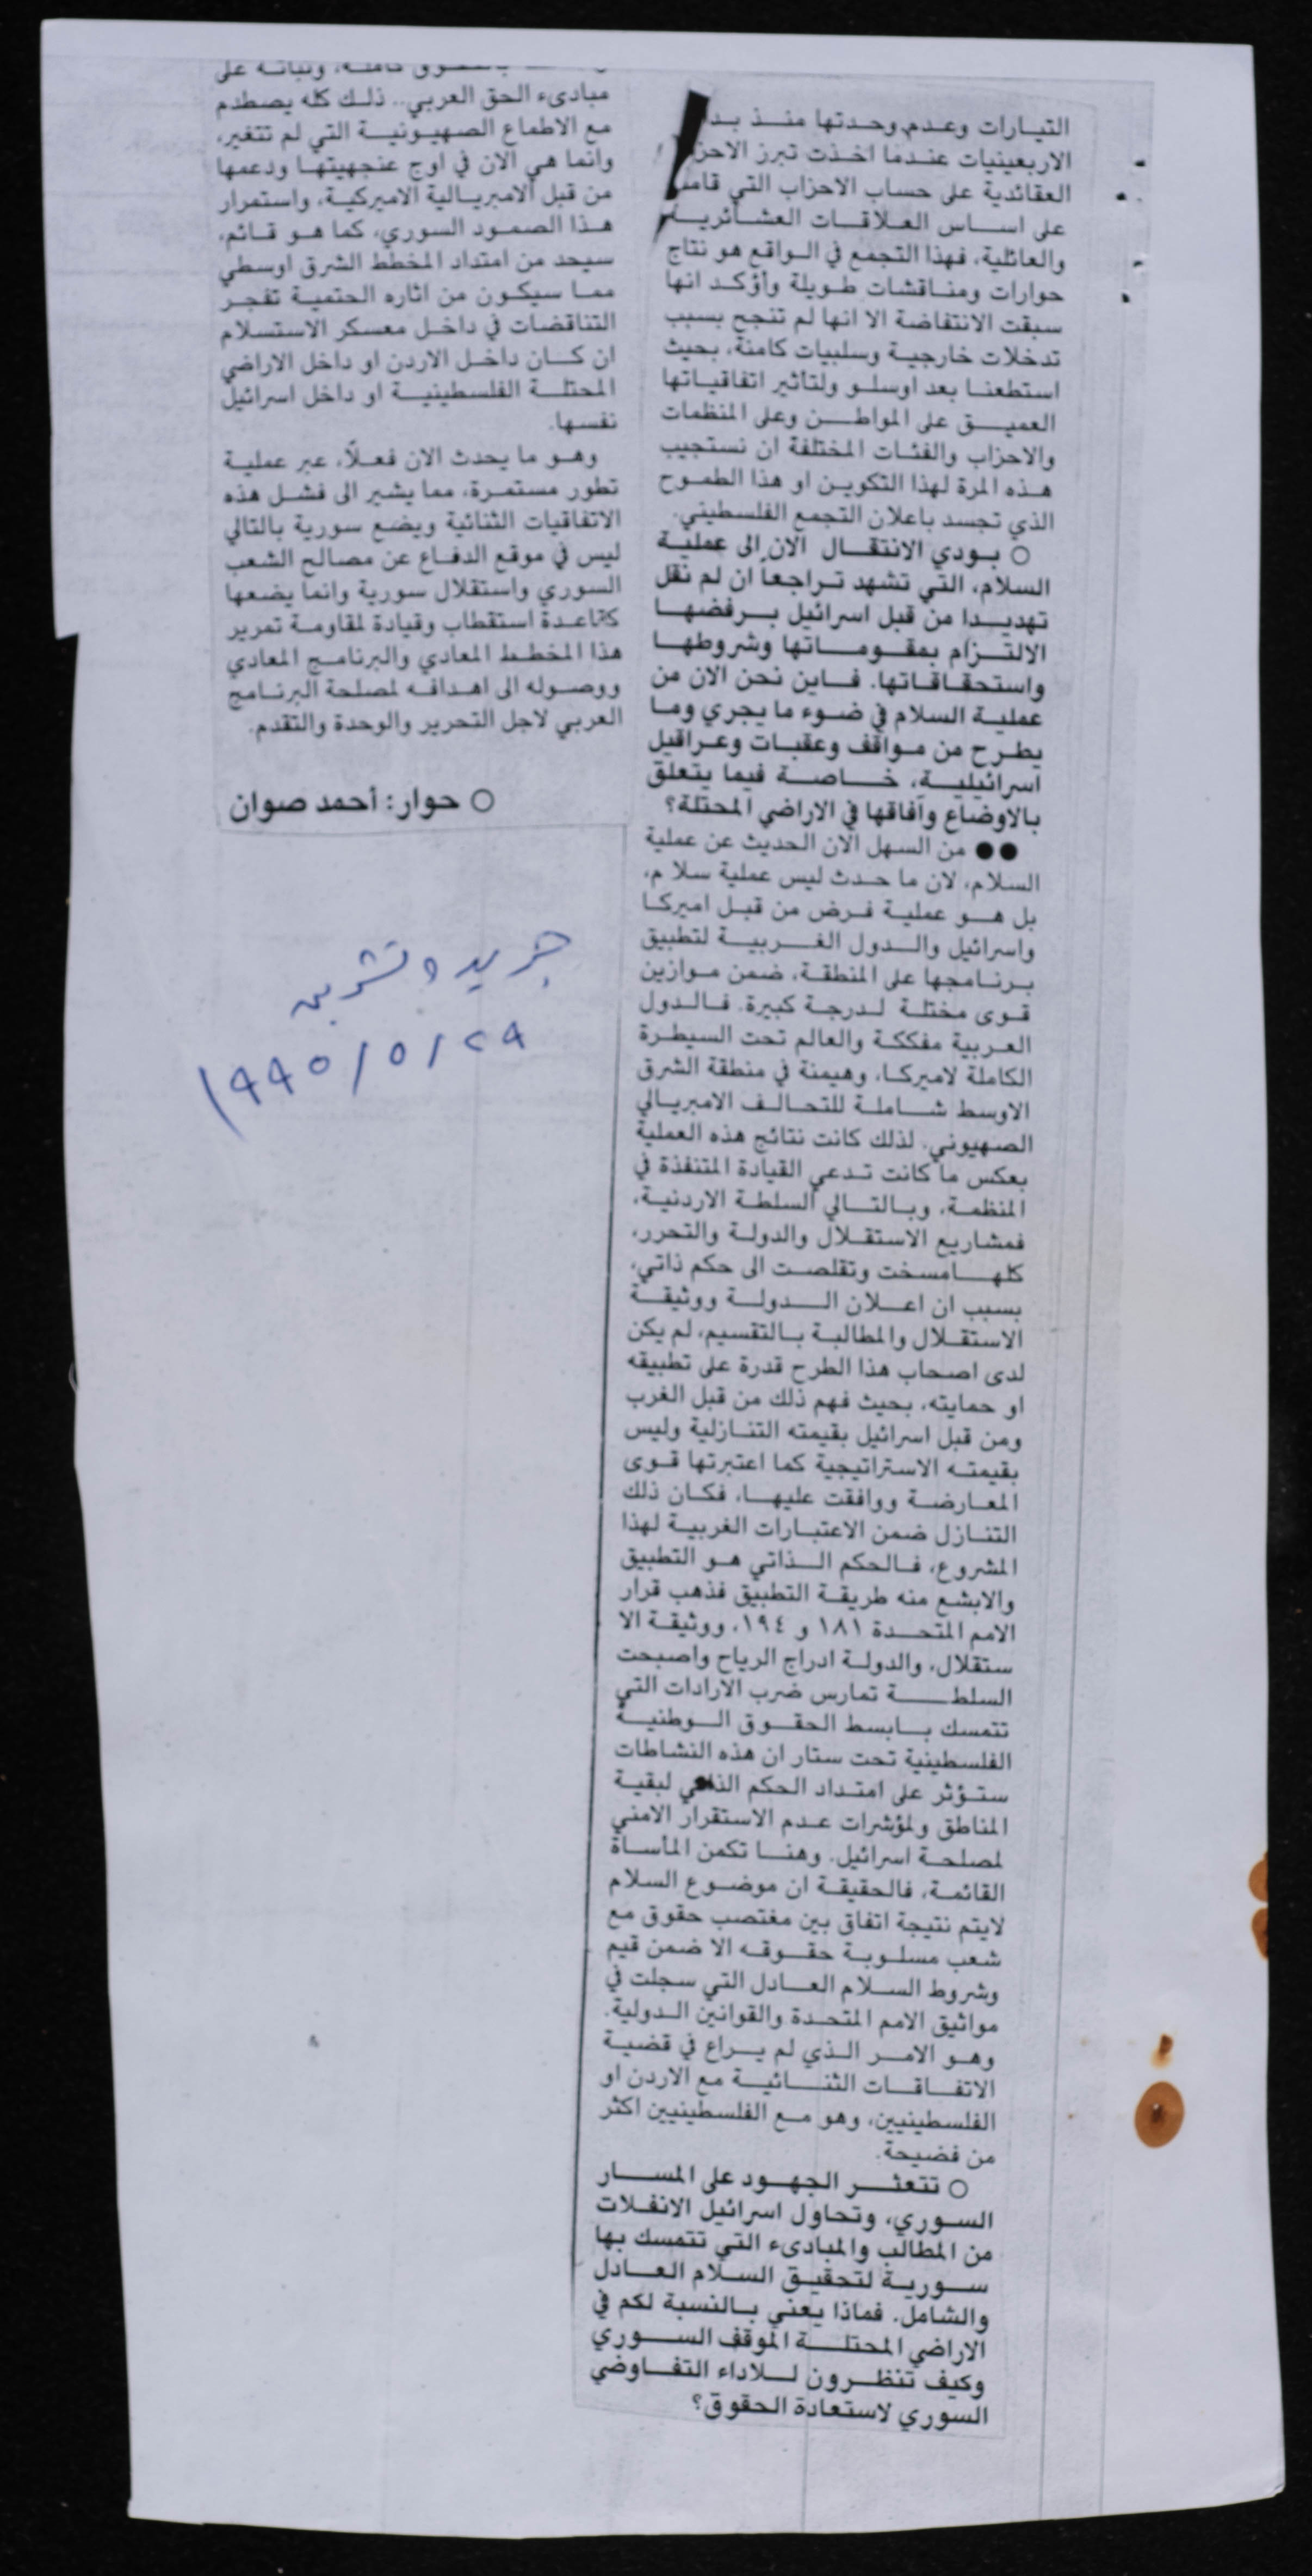 التيارات وعدم وحدتها منذ
الاربعينيات عندما اخذت تبرز
العقائدية على حساب الاحزاب التي قامت
على اساس العلاقات العشائرية
والعائلية، فهذا التجمع في الواقع هو نتاج
حوارات ومناقشات طويلة وأؤكد انها
سبقت الانتفاضة الا انها لم تنجح بسبب
تدخلات خارجية وسلبيات كامنة، بحيث
استطعنا بعد اوسلو ولتأثير اتفاقياتها
العميق على المواطن وعلى المنظمات
والاحزاب والفئات المختلفة ان نستجيب
هذه المرة لهذا التكوين او هذا الطموح
الذي تجسد باعلان التجمع الفلسطيني.
○ بودي الانتقال الان الى عملية
السلام، التي تشهد تراجعاً ان لم نقل
تهديدا من قبل اسرائيل برفضها
الالتزام بمقوماتها وشروطها
واستحقاقاتها. فاين نحن الان من
عملية السلام في ضوء ما يجري وما
يطرح من مواقف وعقبات وعراقيل
اسرائيلية، خاصة فيما يتعلق
بالاوضاع وآفاقها في الاراضي المحتلة؟
●● من السهل الان الحديث عن عملية
السلام، لان ما حدث ليس عملية سلا م،
بل هو عملية فرض من قبل اميركا
واسرائيل والدول الغربية لتطبيق
برنامجها على المنطقة، ضمن موازين
قوى مختلة لدرجة كبيرة. فالدول
العربية مفككة والعالم تحت السيطرة
الكاملة لاميركا، وهيمنة في منطقة الشرق
الاوسط شاملة للتحالف الامبريالي
الصهيوني. لذلك كانت نتائج هذه العملية
بعكس ما كانت تدعي القيادة المتنفذة في
المنظمة، وبالتالي السلطة الاردنية،
فمشاريع الاستقلال والدولة والتحرر،
كلها مسخت وتقلصت الى حكم ذاتي،
بسبب ان اعلان الدولة ووثيقة
الاستقلال والمطالبة بالتقسيم، لم يكن
لدى اصحاب هذا الطرح قدرة على تطبيقه
او حمايته، بحيث فهم ذلك من قبل الغرب
ومن قبل اسرائيل بقيمته التنازلية وليس
بقيمته الاستراتيجية كما اعتبرتها قوى
المعارضة ووافقت عليها، فكان ذلك
التنازل ضمن الاعتبارات الغربية لهذا
المشروع، فالحكم الذاتي هو التطبيق
والابشع منه طريقة التطبيق فذهب قرار
الامم المتحدة ١٨١ و ١٩٤، ووثيقة الا
ستقلال، والدولة ادراج الرياح واصبحت
السلطة تمارس ضرب الارادات التي
تتمسك بابسط الحقوق الوطنية
الفلسطينية تحت ستار ان هذه النشاطات
ستؤثر على امتداد الحكم الذاتي لبقية
المناطق ولمؤشرات عدم الاستقرار الامني
لمصلحة اسرائيل. وهنا تكمن المأساة
القائمة، فالحقيقة ان موضوع السلام
لايتم نتيجة اتفاق بين مغتصب حقوق مع
شعب مسلوبة حقوقه الا ضمن قيم
وشروط السلام العادل التي سجلت في
مواثيق الامم المتحدة والقوانين الدولية.
وهو الامر الذي لم يراع في قضية
الاتفاقات الثنائية مع الاردن او
الفلسطينيين، وهو مع الفلسطينيين اكثر
من فضيحة.
○ تتعثر الجهود على المسار
السوري، وتحاول اسرائيل الانفلات
من المطالب والمبادىء التي تتمسك بها
سورية لتحقيق السلام العادل
والشامل. فماذا يعني بالنسبة لكم في
الاراضي المحتلة الموقف السوري
وكيف تنظرون للاداء التفاوضي
السوري لاستعادة الحقوق؟
كاملة، وثباته على
مبادىء الحق العربي.. ذلك كله يصطدم
مع الاطماع الصهيونية التي لم تتغير،
وانما هي الان في اوج عنجهيتها ودعمها
من قبل الامبريالية الاميركية، واستمرار
هذا الصمود السوري، كما هو قائم،
سيحد من امتداد المخطط الشرق اوسطي
مما سيكون من اثاره الحتمية تفجر
التناقضات في داخل معسكر الاستسلام
ان كان داخل الاردن او داخل الاراضي
المحتلة الفلسطينية او داخل اسرائيل
نفسها.
وهو ما يحدث الان فعلاً، عبر عملية
تطور مستمرة، مما يشير الى فشل هذه
الاتفاقيات الثنائية ويضع سورية بالتالي
ليس في موقع الدفاع عن مصالح الشعب
السوري واستقلال سورية وانما يضعها
كقاعدة استقطاب وقيادة لمقاومة تمرير
هذا المخطط المعادي والبرنامج المعادي
ووصوله الى اهدافه لمصلحة البرنامج
العربي لاجل التحرير والوحدة والتقدم.
○ حوار: أحمد صوان
جريدة تشرين
١٩٩٥/٥/٢٩